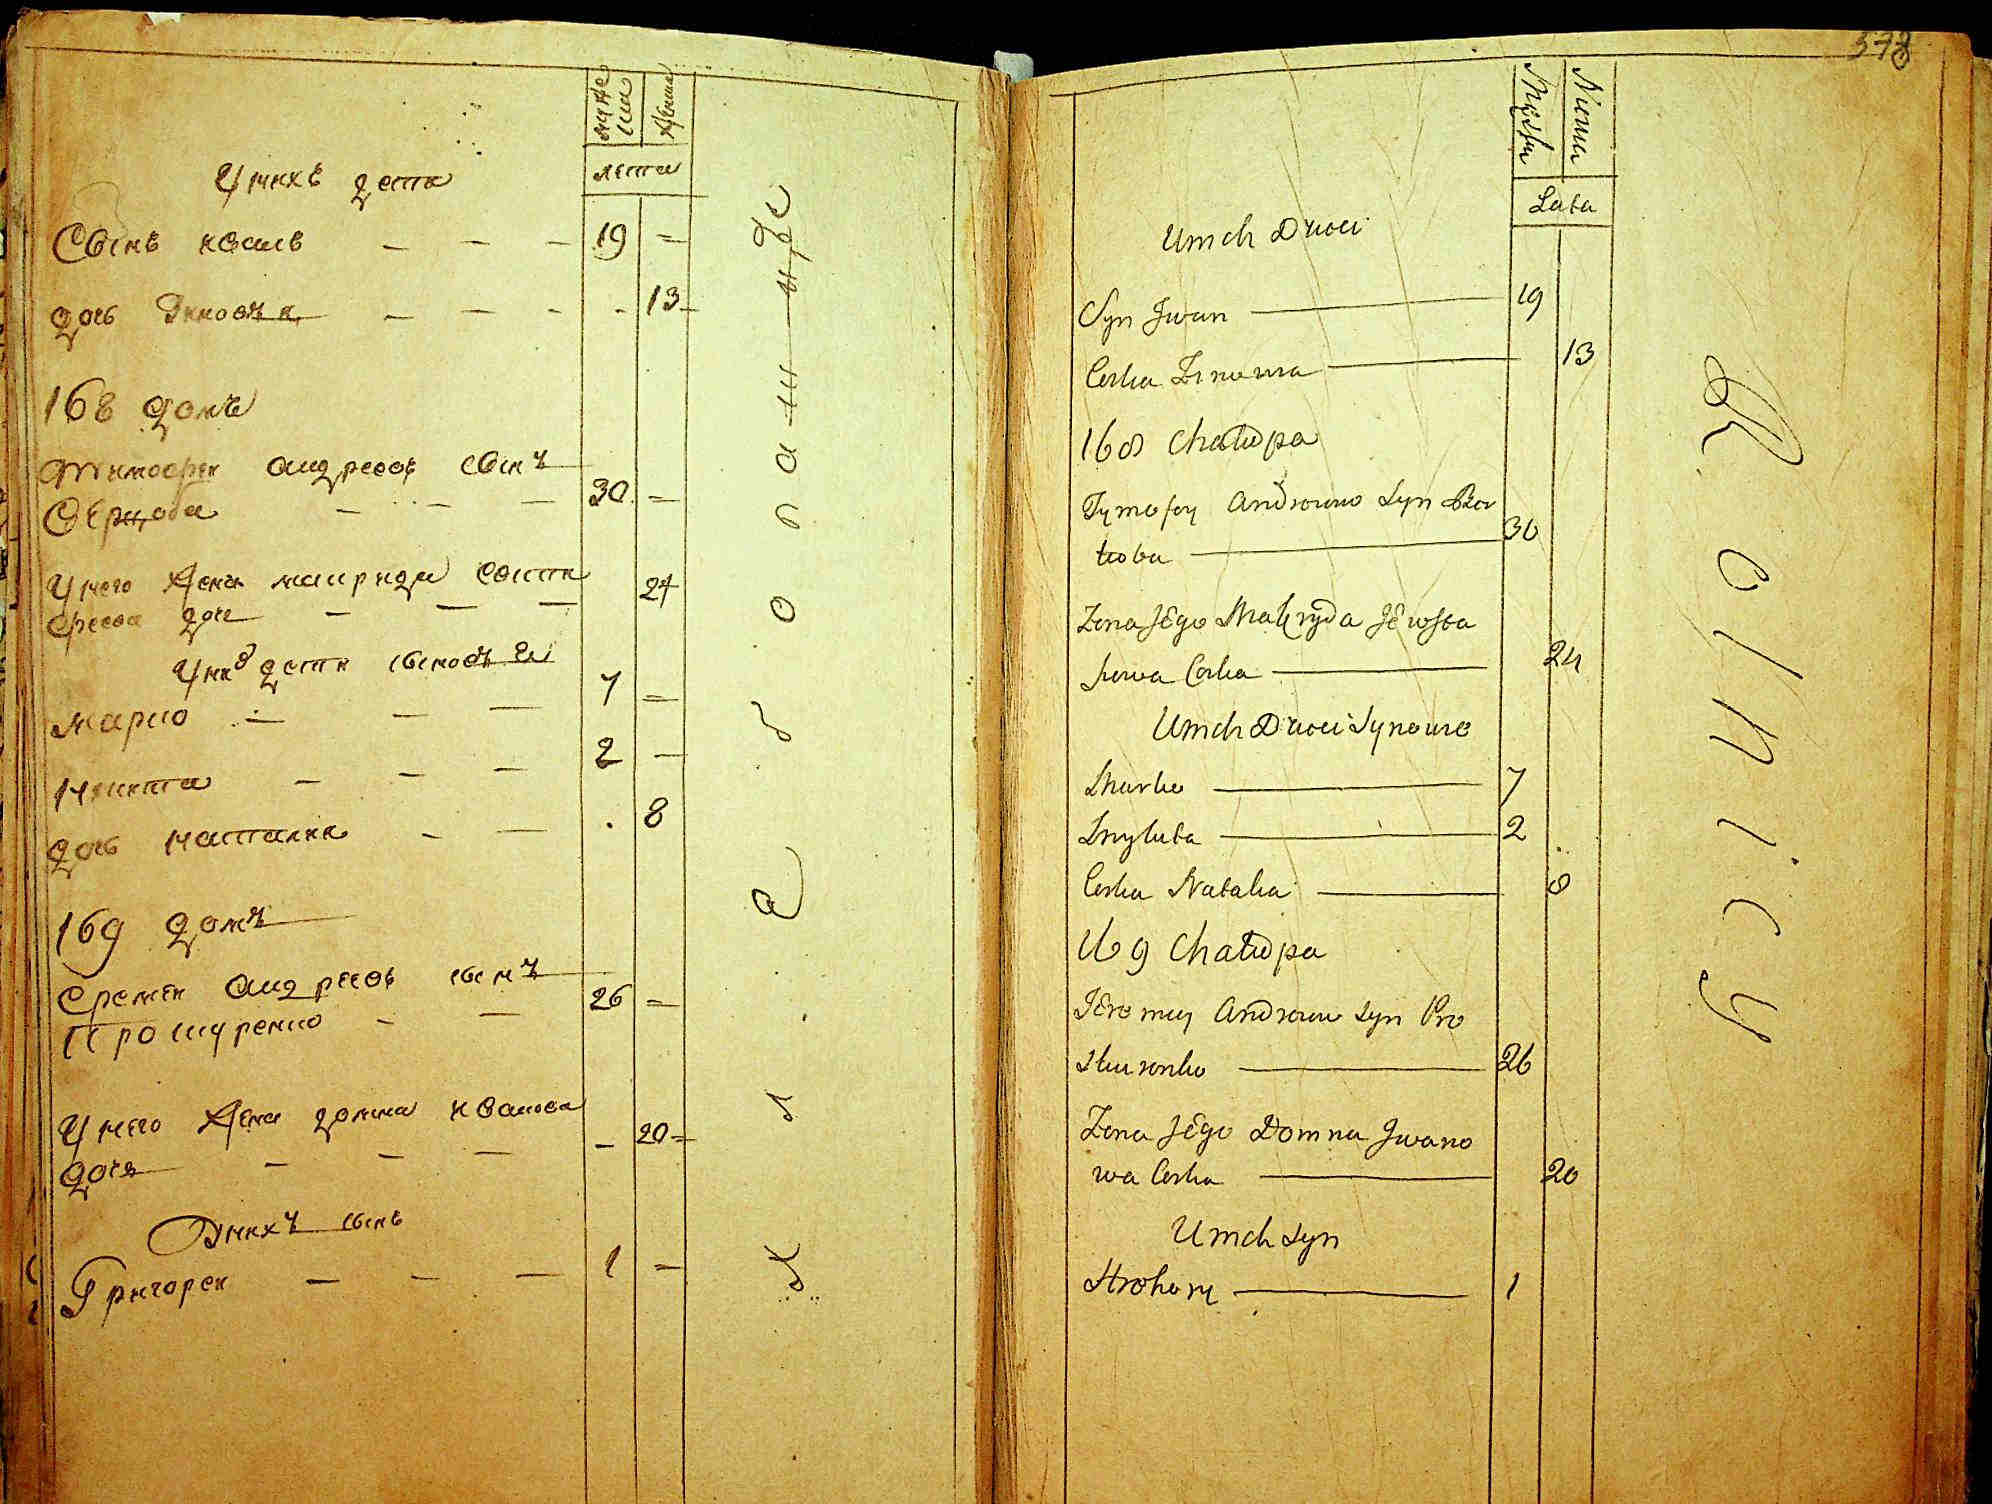 мужеска
женска
лета
У нихъ дети
Сынъ иванъ — — — 19 =
дочь Зиновия — — — - - 13 -
168 домъ
Тимофеи андреевъ сынъ
— — — 30. =
У него жена макрида Евста
фиева доч — — — 24
У них дети сыновя
марко — — — 7 =
никита — — — 2 —
дочь наталия — — . 8
169 домъ
Еремеи андреевъ сынъ
Прошуренко — — 26 =
У него жена домна иванова
дочь — — — — 20 =
У нихъ сынъ
Григореи — — — 1 =
Хлеборобы
378
Męska
Niewia
Lata
U nich Dzieci
Syn Jwan — 19
Corka Zinowia — 13
168 Chałupa
Tymofey Androwo Syn
— 30
Zona Jego Makryda Jewsta
fiowa Corka — 24
U nich Dzieci Synowie
Marko — 7
Mykita — 2
Corka Natalia — 8
169 Chałupa
Jeremiy Androwo Syn Pro
szurenko — 26
Zona Jego Domna Jwano
wa Corka — 20
U nich Syn
Hrohory — 1
Rolnicy